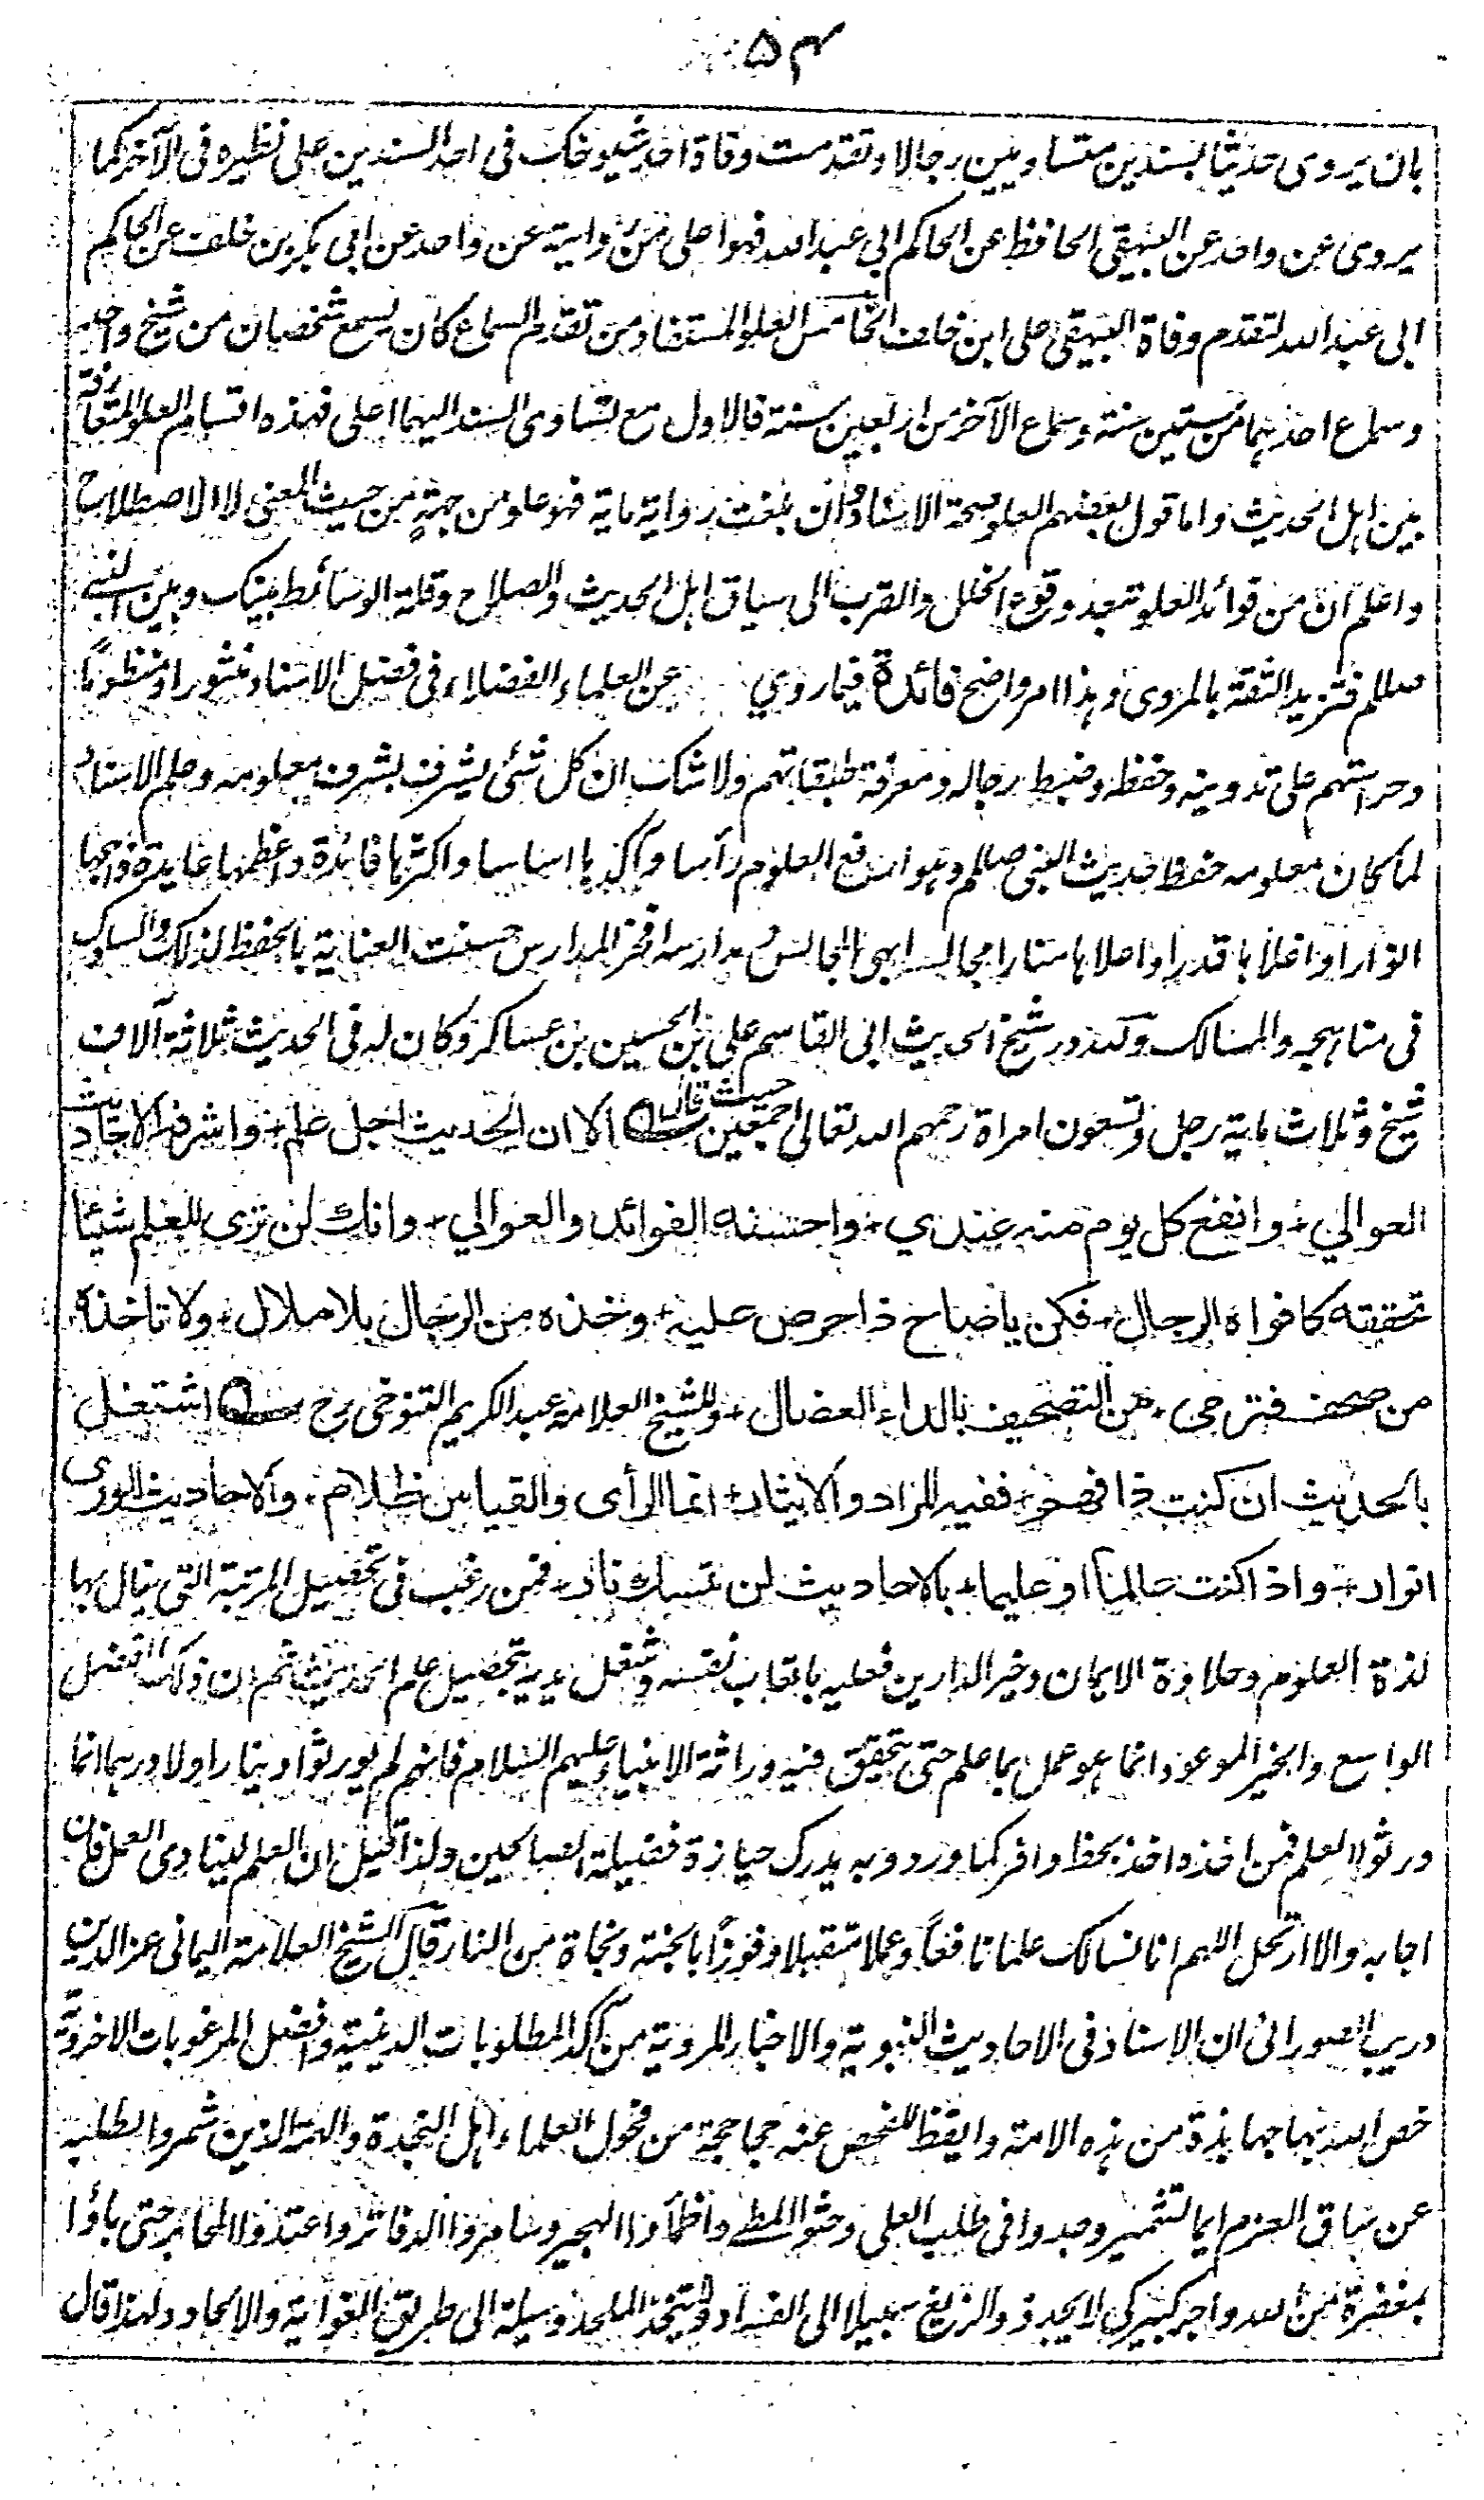 ۵۴
بان يروى حديثا بسندين متساويين رجالا وتقدمت وفاة احد شيوخك فى احد السندين على نظيره فى الآخر كما
يروى عن واحد عن البيهقى الحافظ عن الحاكم ابى عبد الله فهو اعلى من رواية عن واحد عن ابى بكر بن خلف عن الحاكم
ابى عبد الله لتقدم وفاة البيهقى على ابن خلف الخامس العلو المستفاد من تقدم السماع كان يسمع شخصان من شيخ واحد
وسماع احدهما من ستين سنة وسماع الآخر من اربعين سنة فالاول مع تساوى السند اليهما اعلى فهذه اقسام العلو المتعارفة
بين اهل الحديث واما قول بعضهم العلو صحة الاسناد وان بلغت رواته ماية فهو علو من جهةٍ من حيث المعنى لا الاصطلاح
واعلم ان من فوائد العلو تبعد وقوع الخلل والقرب الى سياق اهل الحديث والصلاح وقلة الوسائط بينك وبين النبى
صللم فتزيد الثقة بالمروى وهذا امر واضح فائدة فيما روي عن العلماء الفضلاء فى فضل الاسناد منثورا ومنظوماً
وحراستهم على تدوينه وحفظه وضبط رجاله ومعرفة طبقاتهم ولا شك ان كل شئى يشرف بشرف معلومه وعلم الاسناد
لما كان معلومه حفظ حديث النبى صللم وهو ارفع العلوم رأسا وآكدها اساسا واكثرها فائدة واعظمها عايدة وابهجها
انوارا واغلاها قدرا واعلاها منارا مجالسه ابهى المجالس ومدارسه افخر المدارس حسنت العناية بالحفظ لذلك والسلوك
فى مناهجه والمسالك ولله در شيخ الحديث ابى القاسم على بن الحسين بن عساكر وكان له فى الحديث ثلاثة آلاف
شيخ وثلاث ماية رجل وتسعون امراة رحمهم الله تعالى اجمعين حيث قال ۵ الا ان الحديث اجل علم + واشرفه الاحاديث
العوالي + وانفع كل يوم منه عندي + واحسنه الفوائد والعوالي + وانك لن ترى للعلم شيئا
تحققه كافواه الرجال + فكن يا صاح ذا حرص عليه + وخذه من الرجال بلا ملال + ولا تاخذه
من صحف فترمى + من التصحيف بالداء العضال + وللشيخ العلامة عبد الكريم التنوخى رح ۵ اشتغل
بالحديث ان كنت ذا فهم + ففيه المراد والايثار + انما الراى والقياس ظلام + والاحاديث للورى
انوار + واذا كنت عالماً او عليما + بالاحاديث لن تمسك نار + فمن رغب فى تحصيل المرتبة التى ينال بها
لذة العلوم وحلاوة الايمان وخير الدارين فعليه باتعاب نفسه وشغل يديه بتحصيل علم الحديث ثم ان ذلك الفضل
الواسع والخير الموعود انما هو عمل بما علم حتى يتحقق فيه وراثة الانبياء عليهم السلام فانهم لم يورثوا دينارا ولا درهما انما
ورثوا العلم فمن اخذه اخذ بحظ وافر كما ورد وبه يدرك حيازة فضيلة الصالحين ولذا قيل ان العلم لينادى العمل فان
اجابه والا ارتحل اللهم انا نسالك علما نافعاً وعملا متقبلا وفوزاً بالجنة ونجاة من النار قال الشيخ العلامة اليمانى عز الدين
دريب الصورانى ان الاسناد فى الاحاديث النبوية والاخبار المروية من آكد المطلوبات الدينية وافضل المرغوبات الاخروية
خص الله بها جهابذة من هذه الامة وايقظ للفحص عنه جحاجحة من فحول العلماء اهل النجدة والهمة الذين شمروا لطلبه
عن ساق العزم ايما تشمير وجدوا فى طلب العلى وحثوا المطي واظمأوا الهجير وسامروا الدفاتر واعتذولا المحابر حتى باؤا
بمغفرة من الله واجر كبير كى لا يجد ذو الزيغ سبيلا الى الفساد ولا يتخذ الملحد وسيلة الى طريق الغواية والالحاد ولهذا قال